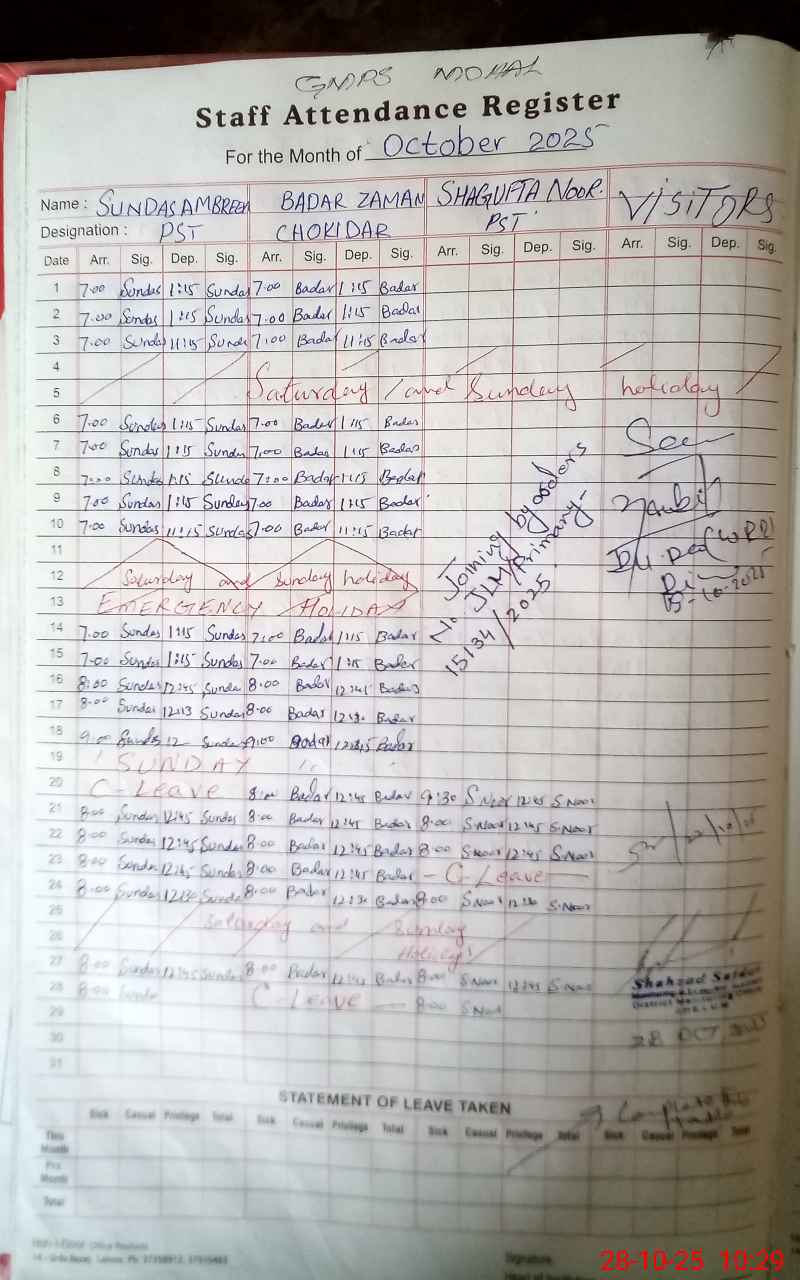 GMPS MOHAL
Staff Attendance Register
For the Month of October 2025
Name : SUNDAS AMBREEN BADAR ZAMAN SHAGUFTA NOOR. VISITORS
Designation : PST CHOKIDAR PST
Date Arr. Sig. Dep. Sig. Arr. Sig. Dep. Sig. Arr. Sig. Dep. Sig. Arr. Sig. Dep. Sig.
1 7.00 Sundas 1:15 Sundas 7.00 Badar 1:15 Badar
2 7.00 Sundas 1:15 Sundas 7.00 Badar 1:15 Badar
3 7.00 Sundas 11:15 Sundas 7:00 Badar 11:15 Badar
4
5 Saturday and Sunday holiday
6 7.00 Sundas 1:15 Sundas 7.00 Badar 1:15 Badar
7 7.00 Sundas 1:15 Sundas 7.00 Badar 1:15 Badar
8 7:00 Sundas 1:15 Sundas 7:00 Badar 1:15 Badar
9 7.00 Sundas 1:15 Sundas 7.00 Badar 1:15 Badar
10 7.00 Sundas 11:15 Sundas 7.00 Badar 11:15 Badar
11
12 Saturday and Sunday holiday
13 EMERGENCY HOLIDAY
Joining by orders
No. JLM/Primary-
15134/2025
15-10-2025
14 7.00 Sundas 1:15 Sundas 7:00 Badar 1:15 Badar
15 7.00 Sundas 1:15 Sundas 7.00 Badar 1:15 Badar
16 8:00 Sundas 12:45 Sundas 8.00 Badar 12:45 Badar
17 8.00 Sundas 12:13 Sundas 8.00 Badar Badar
18 9.00 Sundas 12 Sundas 9:00 Badar Badar
19 SUNDAY
20 C-Leave 8:00 Badar 12:45 Badar 9:30 S Noor 12:45 S.Noor
21 8:00 Sundas 12:45 Sundas 8.00 Badar 12:45 Badar 8:00 S.Noor 12:45 S.Noor
22 8:00 Sundas 12:45 Sundas 8.00 Badar 12:45 Badar 8:00 S.Noor 12:45 S.Noor
23 8:00 Sundas 12:45 Sundas 8:00 Badar 12:45 Badar - C-Leave -
24 8:00 Sundas 12:30 Sundas 8:00 Badar 12:30 Badar 8:00 S.Noor 12:30 S.Noor
25 Saturday and Sunday
26 Holiday
27 8:00 Sundas 12:45 Sundas 8:00 Badar 12:45 Badar 8:00 S Noor 12:45 S Noor
28 8:00 Sundas C-Leave 8:00 S Noor
29
30
31
28 OCT 2025
STATEMENT OF LEAVE TAKEN
Sick Casual Privilege Total Sick Casual Privilege Total Sick Casual Privilege Total Sick Casual Privilege Total
This Month
Pre. Month
Total
Signature
28-10-25 10:29